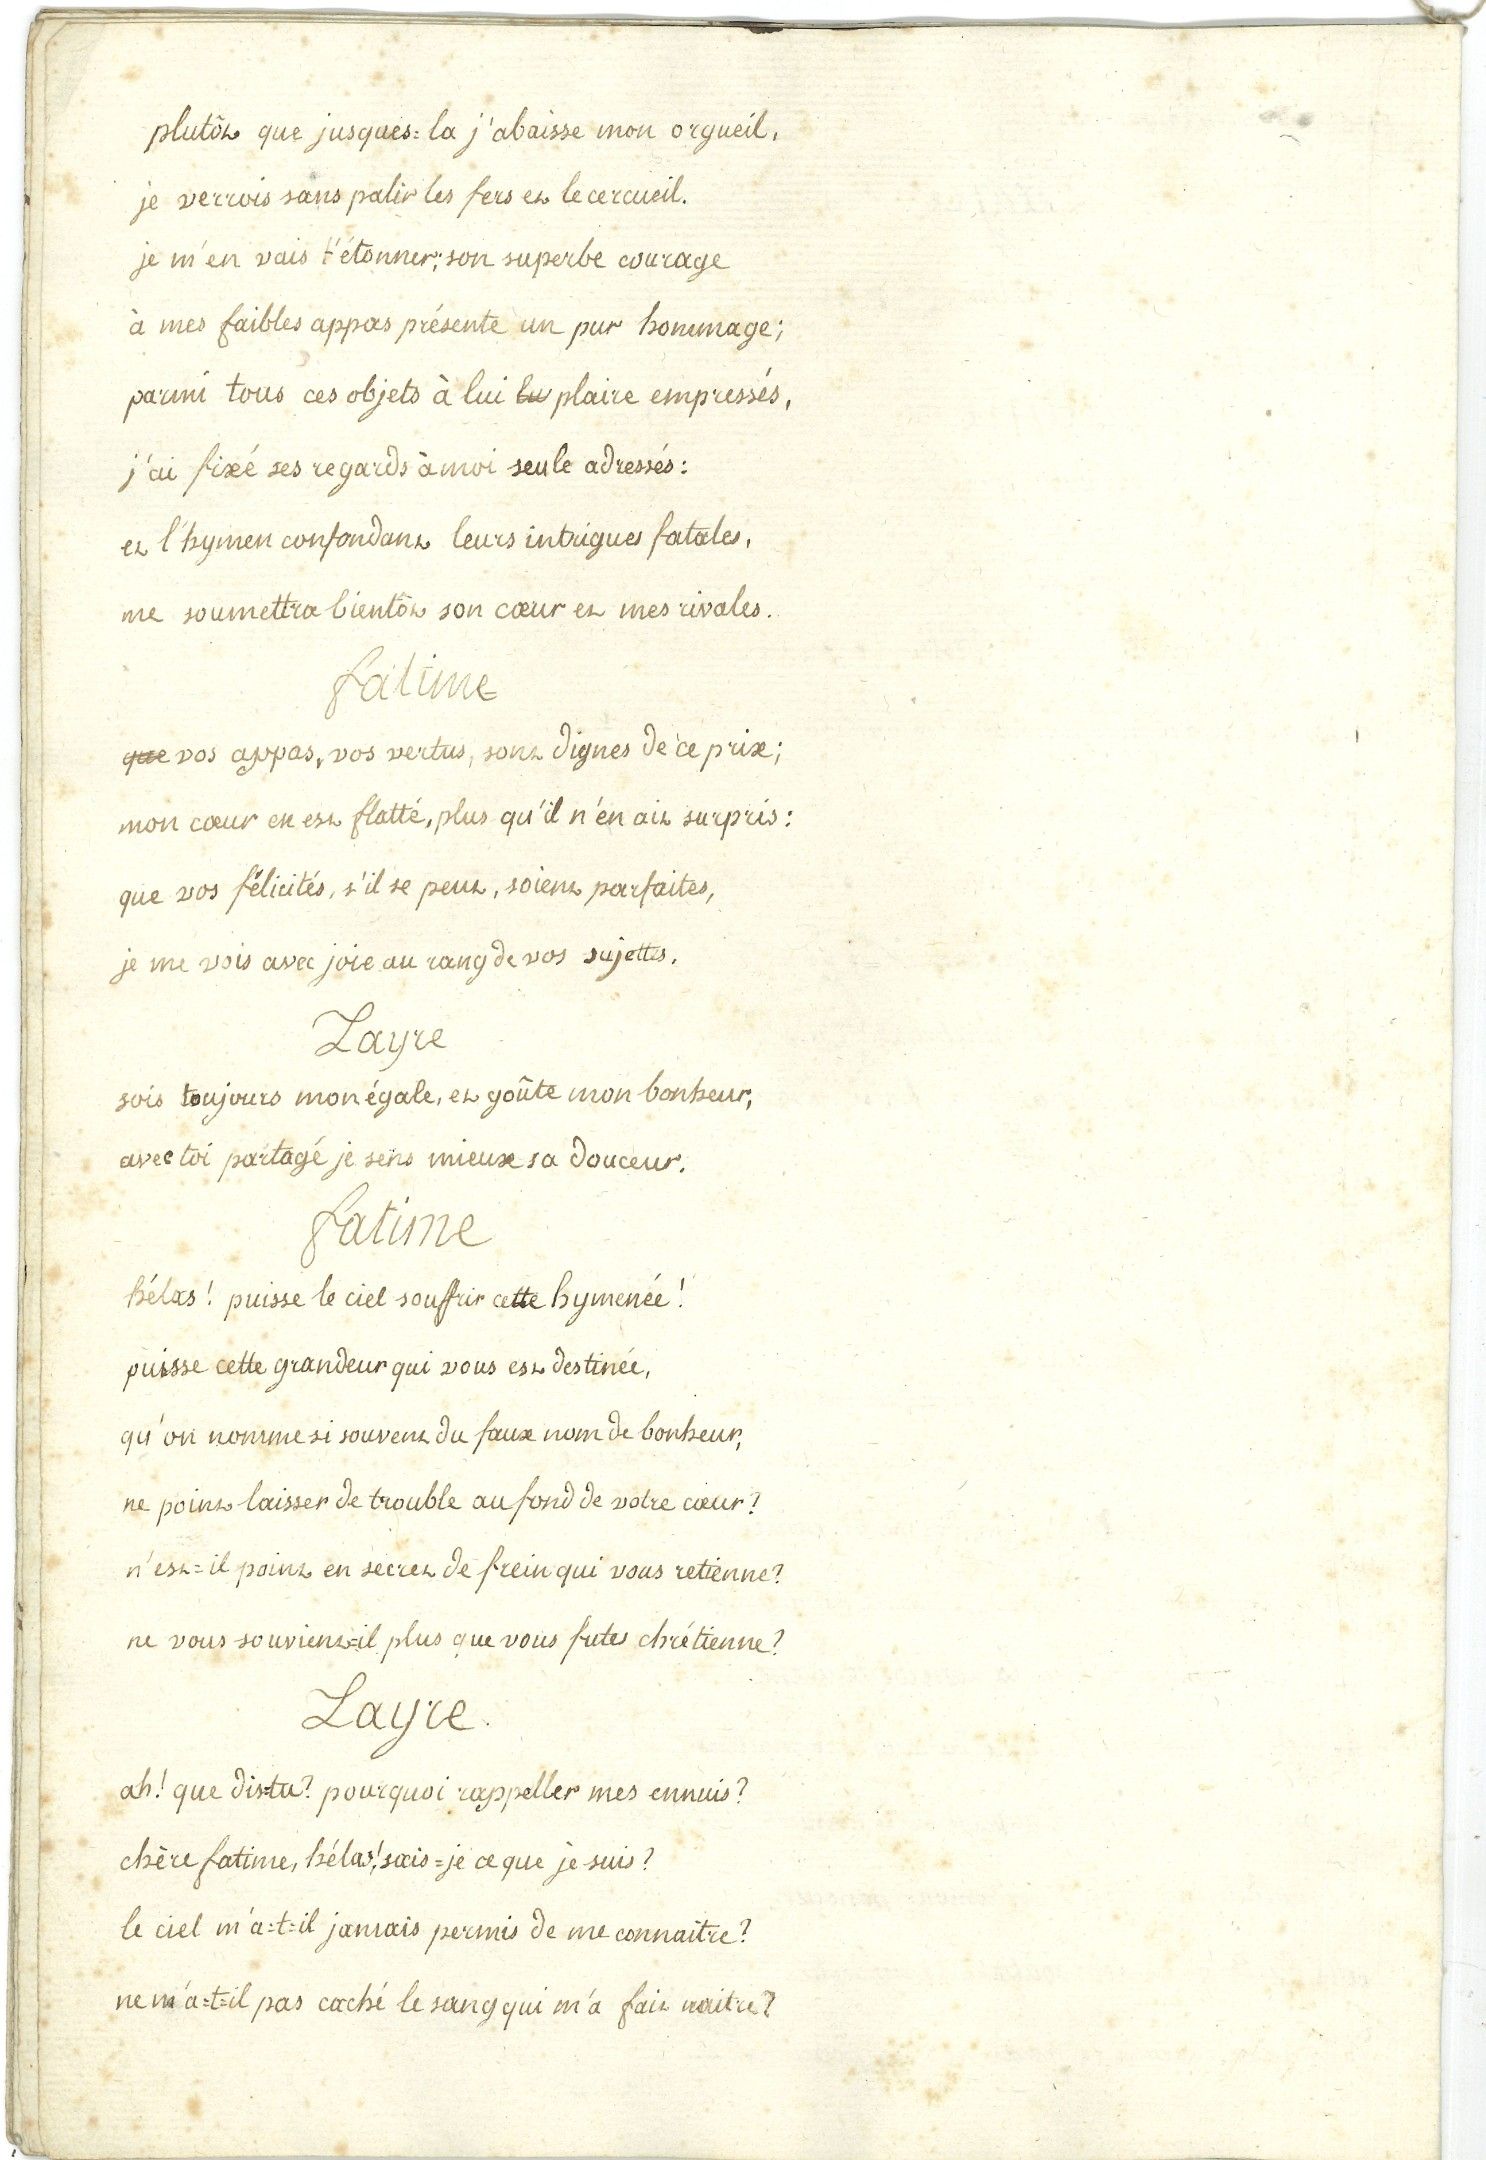 plutôt que jusques=la j'abaisse mon orgueil,
je verrois sans palir les fers et le cercueil.
je m'en vais t'étonner; son superbe courage
à mes faibles appas présente un pur hommage;
parmi tous ces objets à lui lui plaire empressés,
j'ai fixé ses regards à moi seule adressés:
et l'hymen confondant leurs intrigues fatales,
me soumettra bientôt son cœur et mes rivales.
fatime
que vos appas, vos vertus, sont dignes de ce prix;
mon cœur en est flatté, plus qu'il n'en ait surpris:
que vos félicités, s'il se peut, soient parfaites,
je me vois avec joie au rang de vos sujettes.
Zayre
sois toujours mon égale, et goûte mon bonheur,
avec toi partagé je sens mieux sa douceur.
fatime
hélas! puisse le ciel souffrir cette hymenée!
puisse cette grandeur qui vous est destinée,
qu'on nomme si souvent du faux nom de bonheur,
ne point laisser de trouble au fond de votre cœur?
n'est=il point en secret de frein qui vous retienne?
ne vous souvient=il plus que vous futes chrétienne?
Zayre.
ah! que dis-tu? pourquoi rappeller mes ennuis?
chère fatime, hélas! sais=je ce que je suis?
le ciel m'a=t=il jamais permis de me connaitre?
ne m'a=t=il pas caché le sang qui m'a fait naitre?